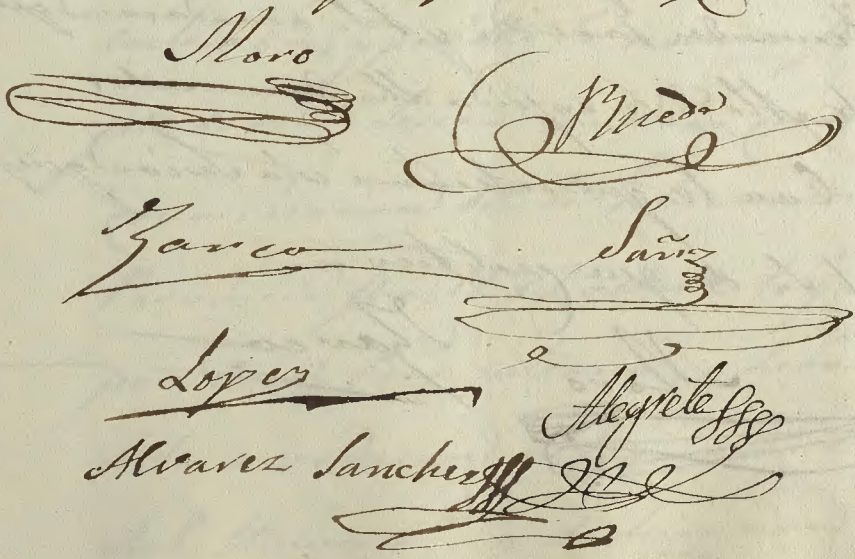 Moro
Rueda
Zarco
Sañz
Lopez
Alegrete
Alvarez Sanchez